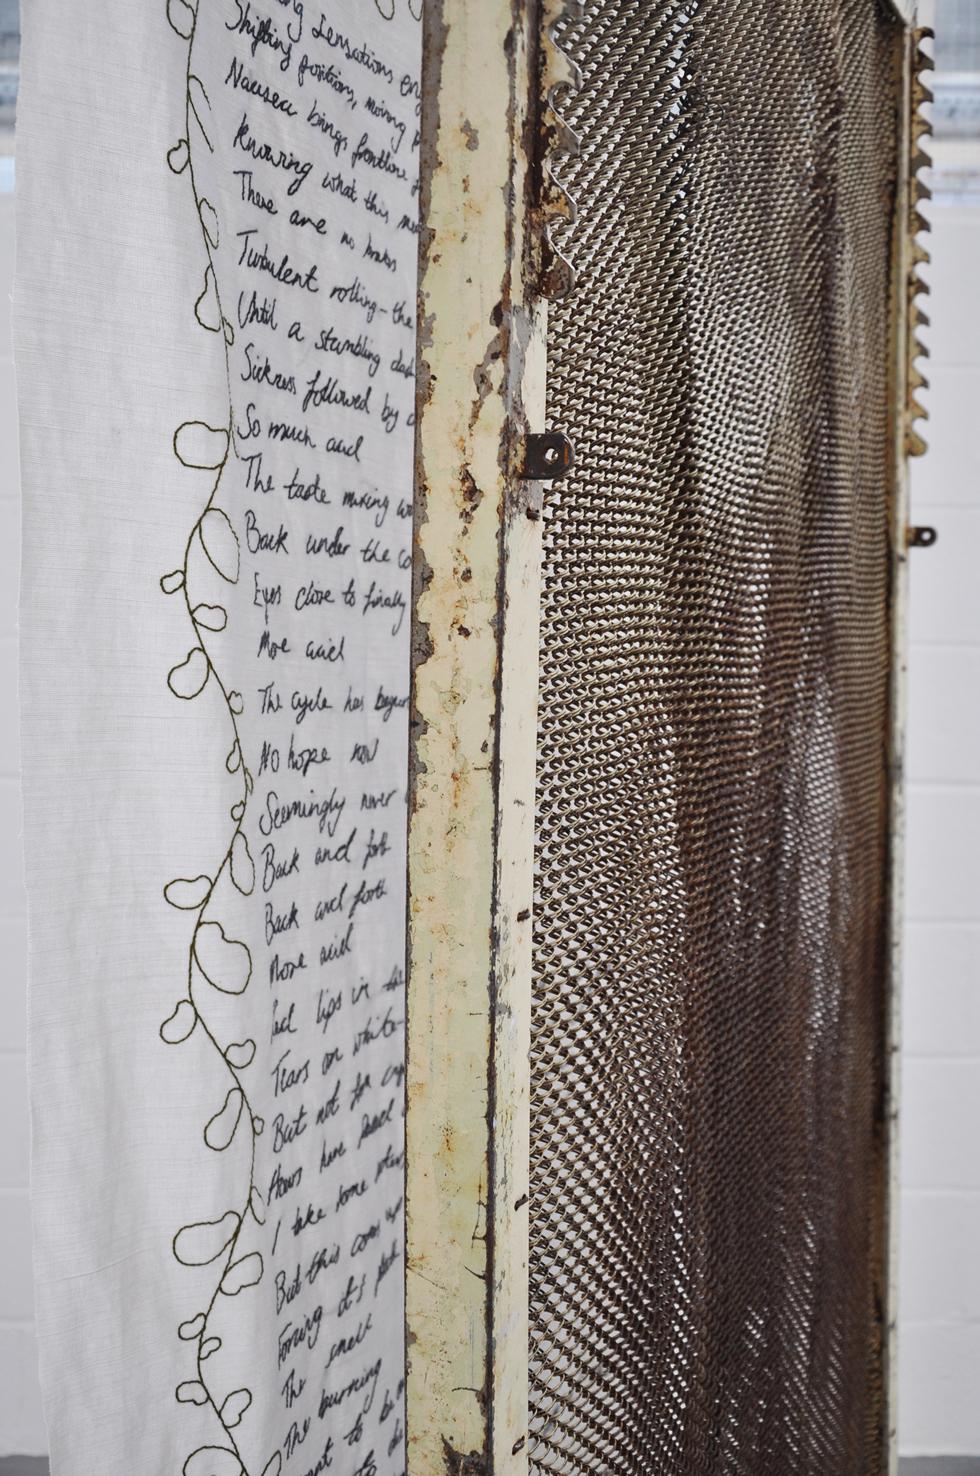 ng Sensations
Shifting positions, moving
Nausea brings frontline
Knowing what this
There are no brakes
Turbulent rolling - the
Until a stumbling
Sickness followed by
So much acid
The taste mixing
Back under the co
Eyes close to finally
More acid
The cycle has begun
No hope now
Seemingly never
Back and forth
Back and forth
More acid
lips in the
Tears on white
But not for
Hours have
I take some
But this comes up
Forcing its
The smell
The burning
to be
to